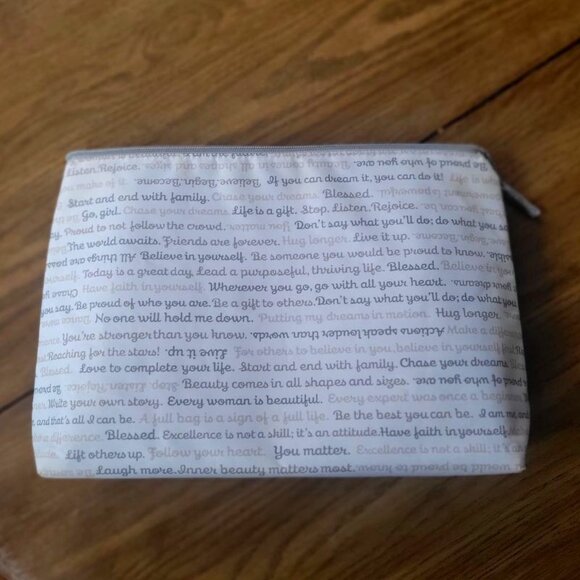 Listen. Rejoice. Beauty comes in all shapes and sizes. Be proud of who you are.
make it. Believe. Begin. Become. If you can dream it, you can do it! Life is
Start and end with family. Chase your dreams. Blessed.
Go, girl. Chase your dreams. Life is a gift. Stop. Listen. Rejoice.
Proud to not follow the crowd. You matter. Don't say what you'll do; do what you
The world awaits. Friends are forever. Hug longer. Live it up. Believe. Begin. Become.
All things are Believe in yourself. Be someone you would be proud to know.
yourself. Today is a great day. Lead a purposeful, thriving life. Blessed. Believe in
Chase Have faith in yourself. Wherever you go, go with all your heart.
you say. Be proud of who you are. Be a gift to others. Don't say what you'll do; do what you
No one will hold me down. Putting my dreams in motion. Hug longer.
You're stronger than you know. Actions speak louder than words. Make a
Reaching for the stars! Live it up. For others to believe in you, believe in yourself first
Love to complete your life. Start and end with family. Chase your dreams
Stop. Listen. Rejoice. Beauty comes in all shapes and sizes. Be proud of who you are.
Write your own story. Every woman is beautiful. Every expert was once a beginner.
and that's all I can be. A full bag is a sign of a full life. Be the best you can be. I am me
difference. Blessed. Excellence is not a skill; it's an attitude. Have faith in yourself.
Lift others up. Follow your heart. You matter. Excellence is not a skill; it's
Laugh more. Inner beauty matters most. would be proud to know. Be